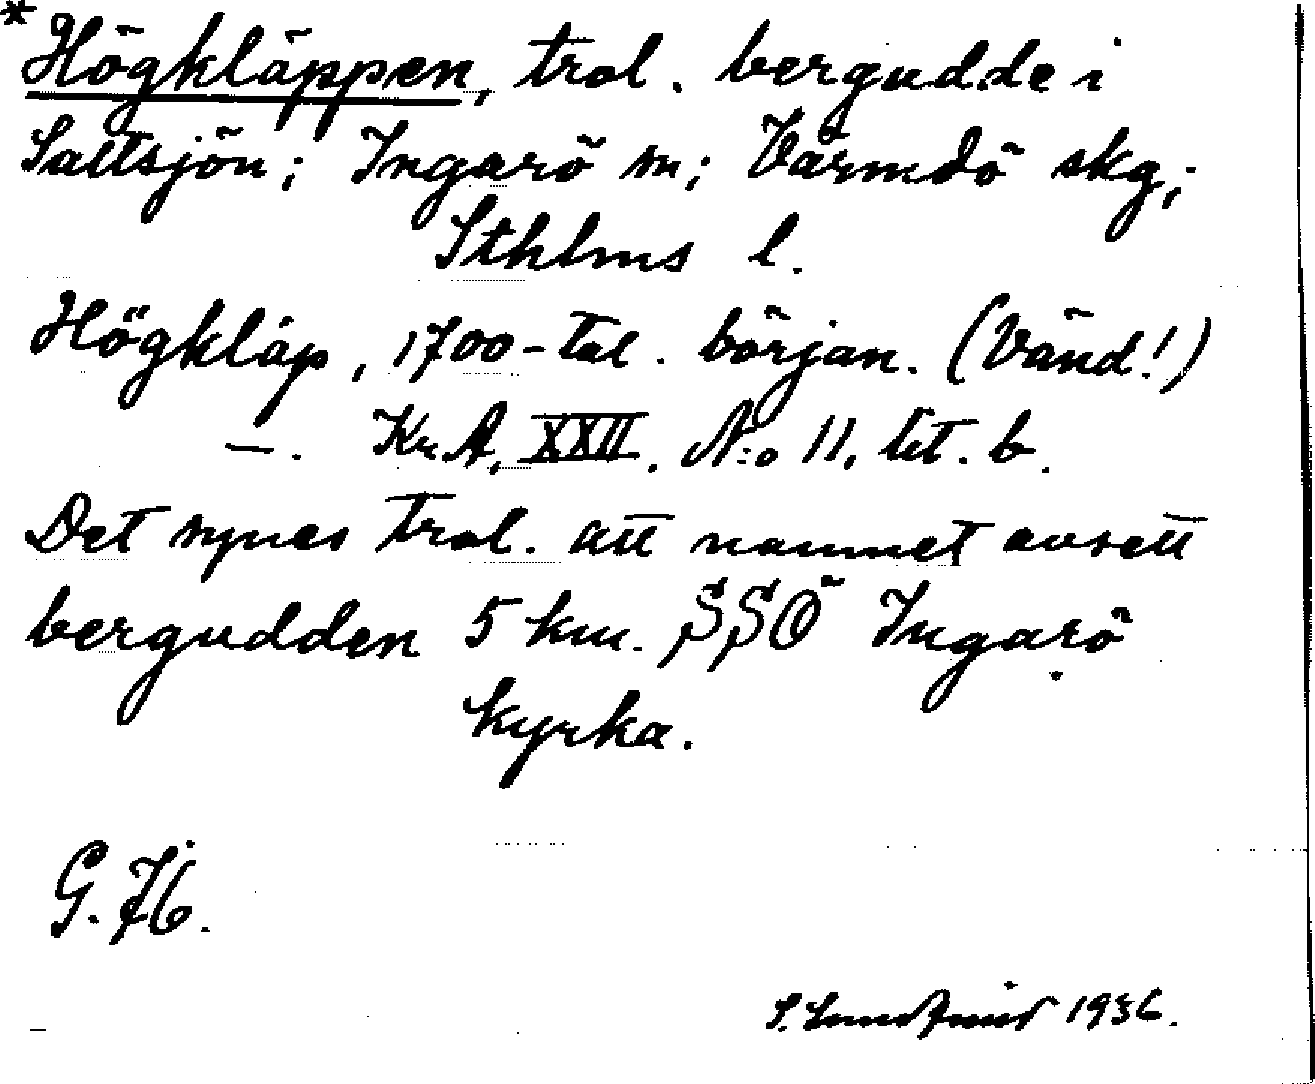 *Högkläppen, trol. bergudde i
Saltsjön; Ingarö sn; Värmdö skg;
Sthlms l.
Högkläp, 1700-tal. början. (Vänd!)
—. Kr.A. XXII. N:o 11, lit. b.
Det synes trol. att namnet avsett
bergudden 5 km. SSÖ Ingarö
kyrka.
G. H.
S. 1936.